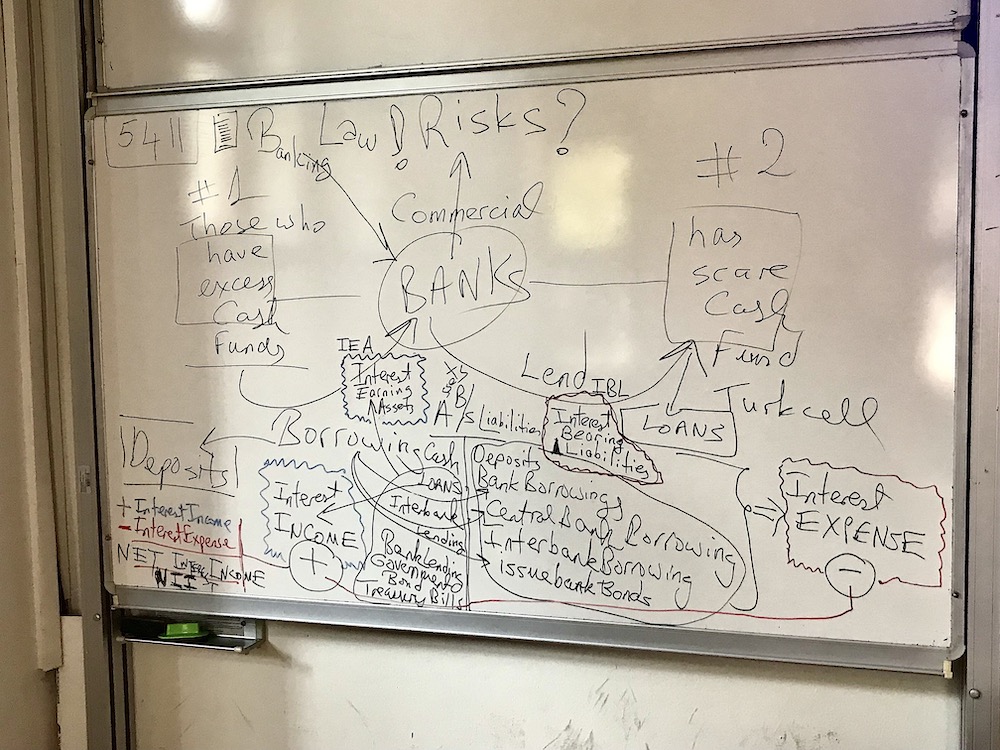 5411 Banking Law! Risks?
#1
Those who
have
excess
Cash
Funds
Commercial
BANKs
#2
has
scare
Cash
Fund
Turkcell
Lend
LOANS
IEA
Interest
Earning
Assets
IBL
Interest
Bearing
Liabilities
B/S
A/Liabilities
Borrowing
Deposits
+ Interest Income
- Interest Expense
NET INTEREST INCOME
NII
Interest
INCOME
+
Cash
LOANS
Interbank
Lending
Bank Lending
Government
Bond
Treasury Bills
Deposits
Bank Borrowings
Central Bank Borrowing
Interbank Borrowing
issue bank Bonds
Interest
EXPENSE
-